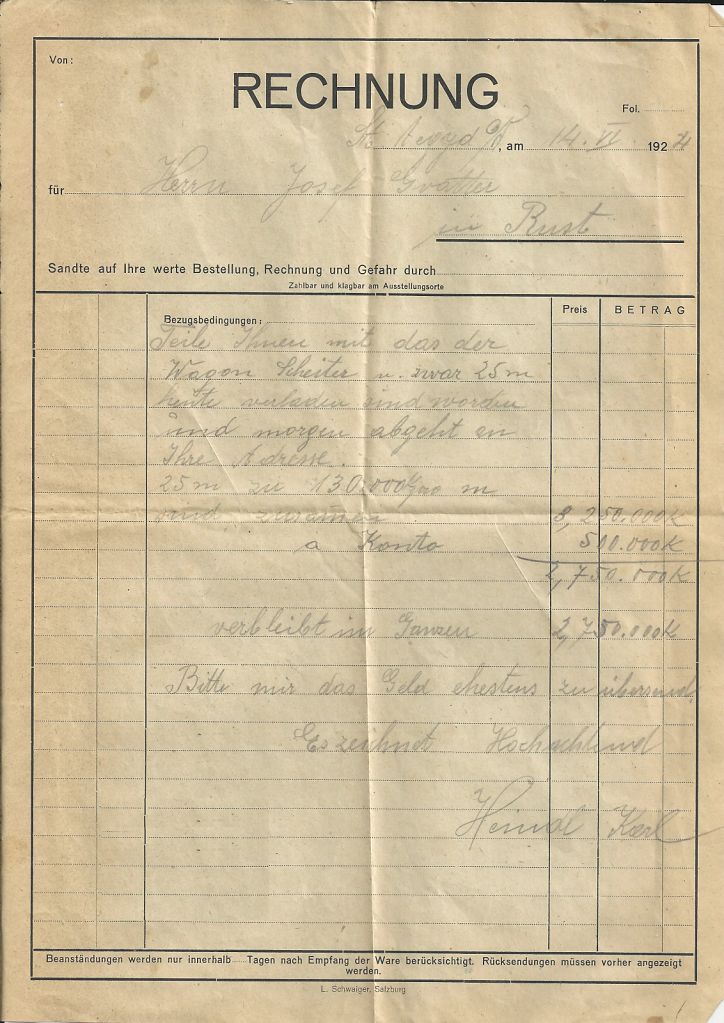 Von:
RECHNUNG
Fol.
St. Aegyd, am 14. VI. 1924
für Herrn Josef
in Rust
Sandte auf Ihre werte Bestellung, Rechnung und Gefahr durch
Zahlbar und klagbar am Ausstellungsorte
Bezugsbedingungen: Preis BETRAG
Teile Ihnen mit das der
Wagon Scheiter u. zwar 25 m
heute verladen sind worden
und morgen abgeht an
Ihre Adresse.
25 m zu 130.000 K m
sind zusamen 3,250.000 K
a Konto 500.000 K
2,750.000 K
verbleibt im Ganzen 2,750.000 K
Bitte mir das Geld ehestens zu übersend.
Es zeichnet Hochachtend
Heindl Karl
Beanständungen werden nur innerhalb Tagen nach Empfang der Ware berücksichtigt. Rücksendungen müssen vorher angezeigt
werden.
L. Schwaiger, Salzburg